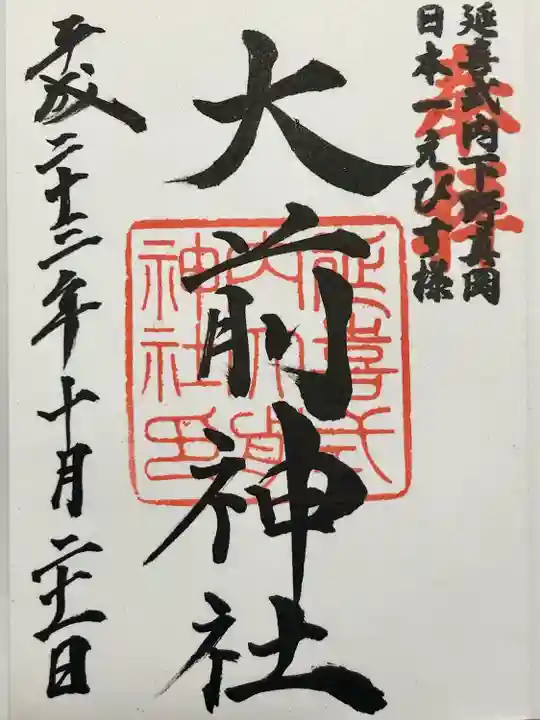 延喜式内下野真岡
日本一えびす様
奉拝
大前神社
延喜式
内大前
神社印
平成二十三年十月二十一日